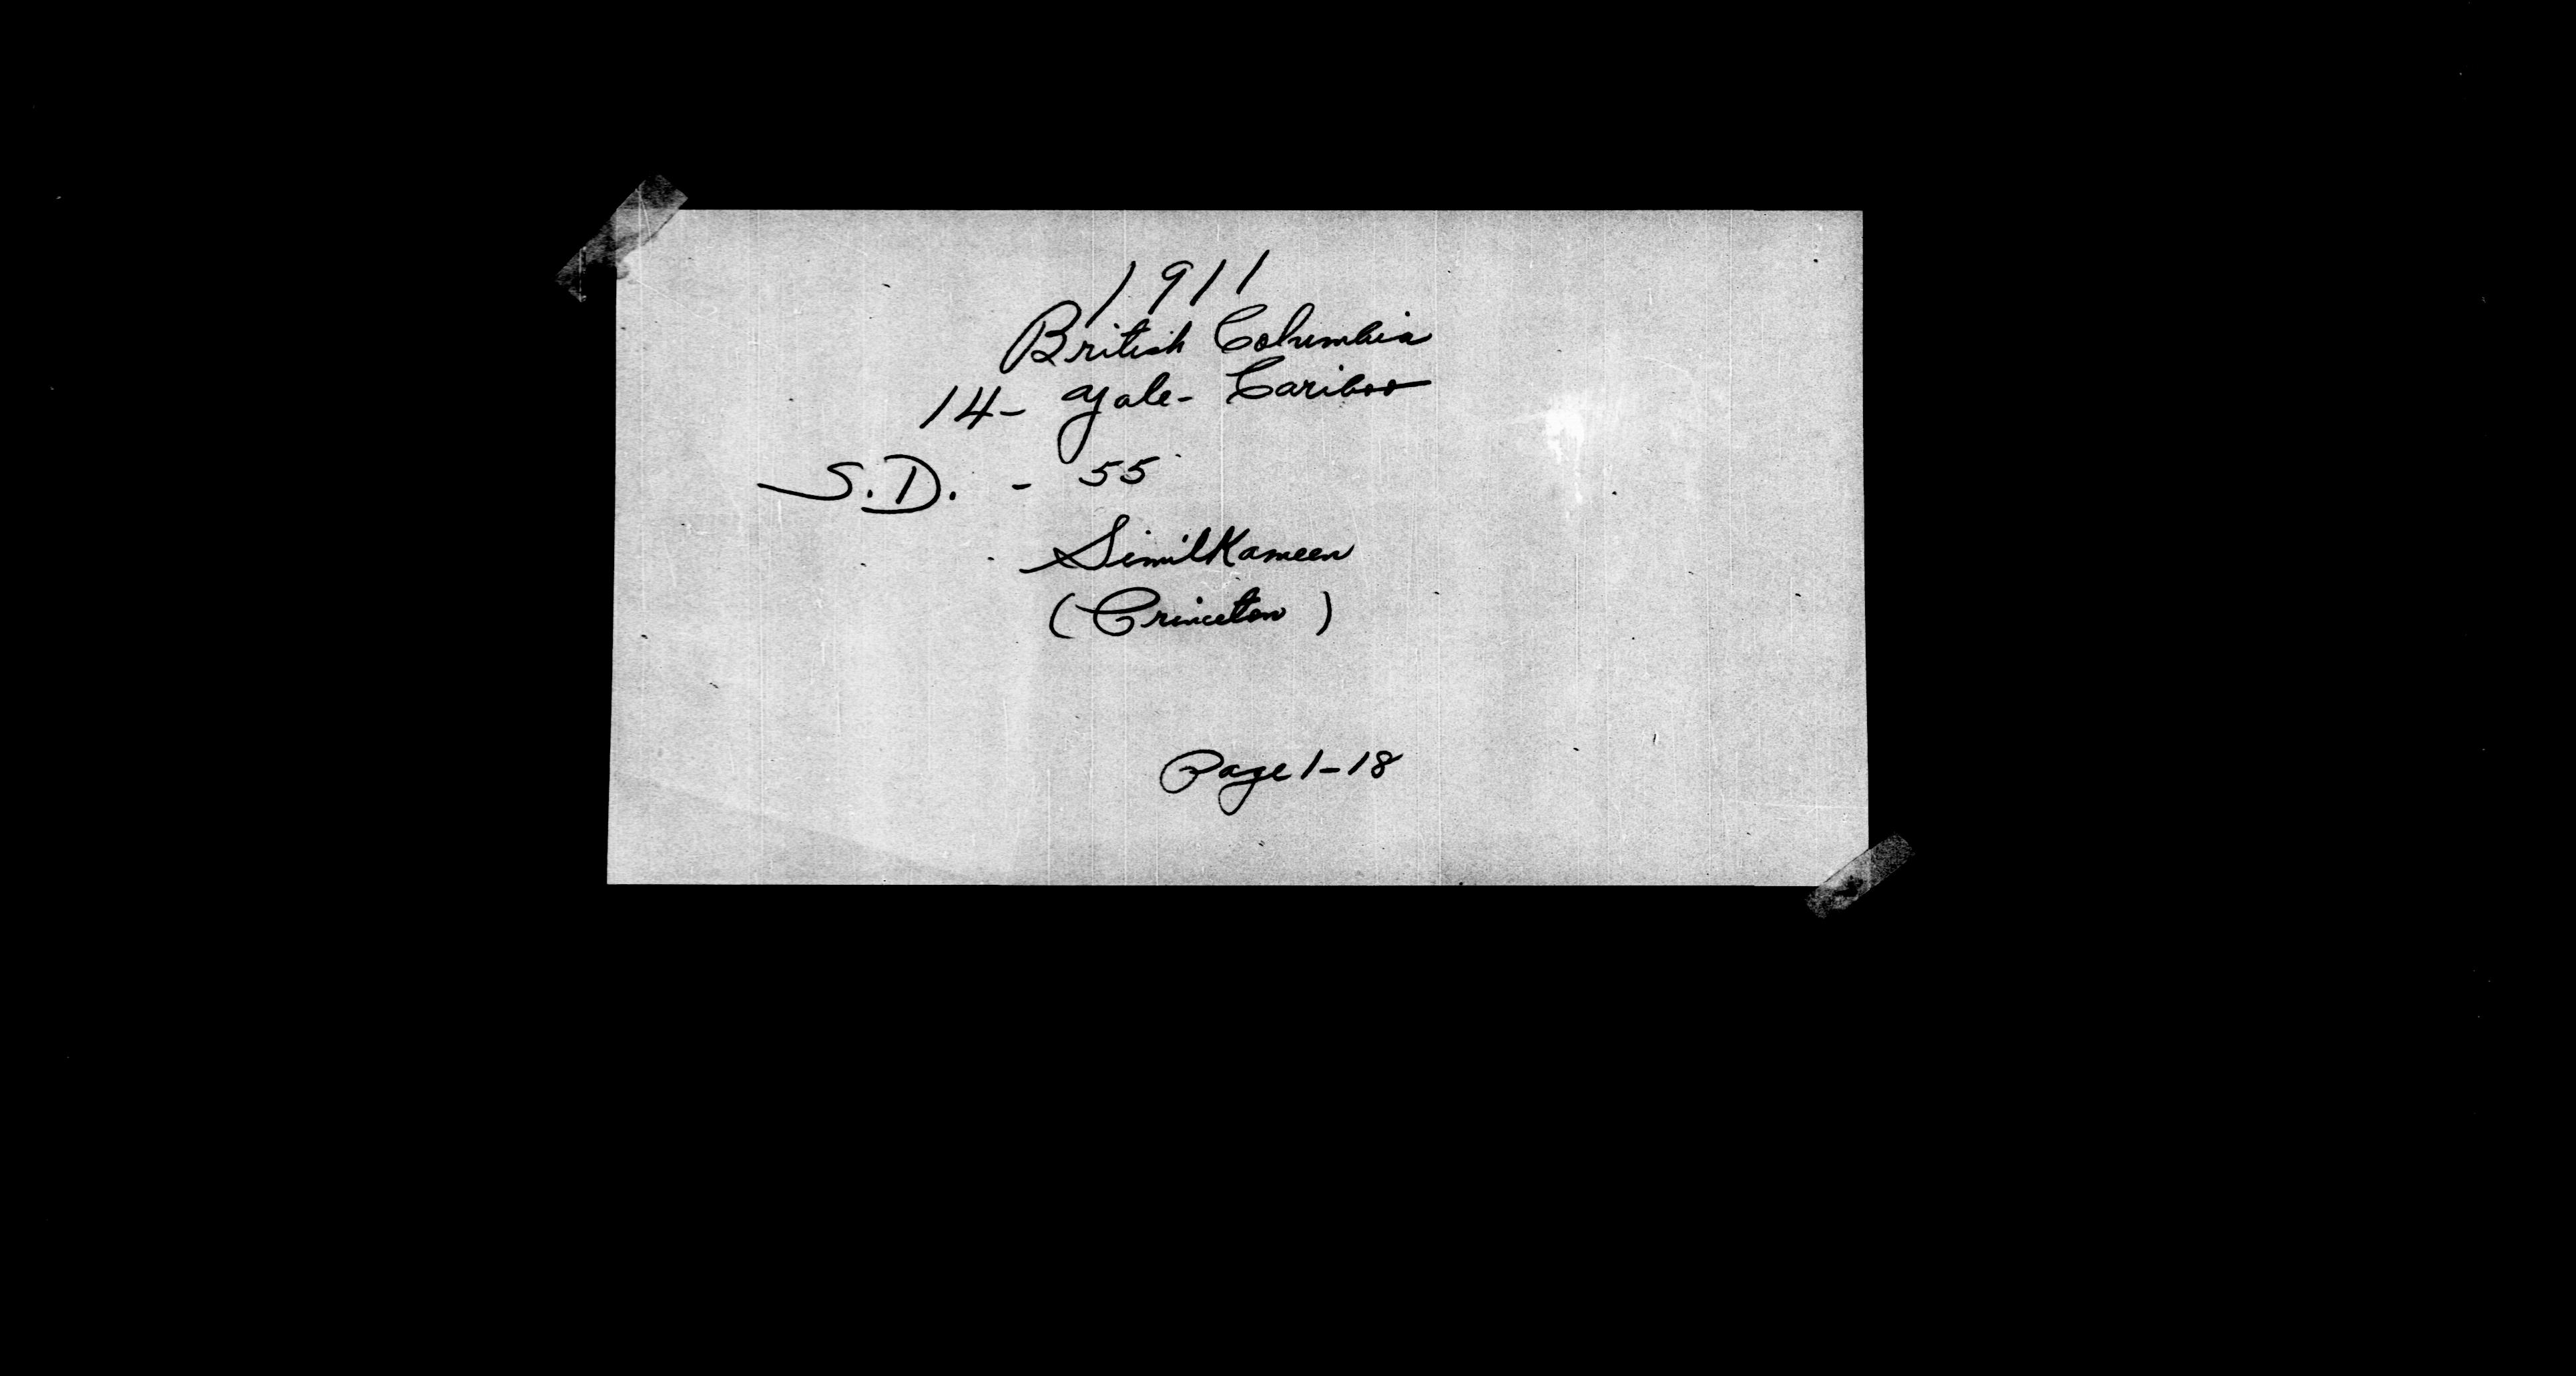 1911
British Columbia
14- Yale- Cariboo
S.D. - 55
SimilKameen
(Princeton )
Page 1-18